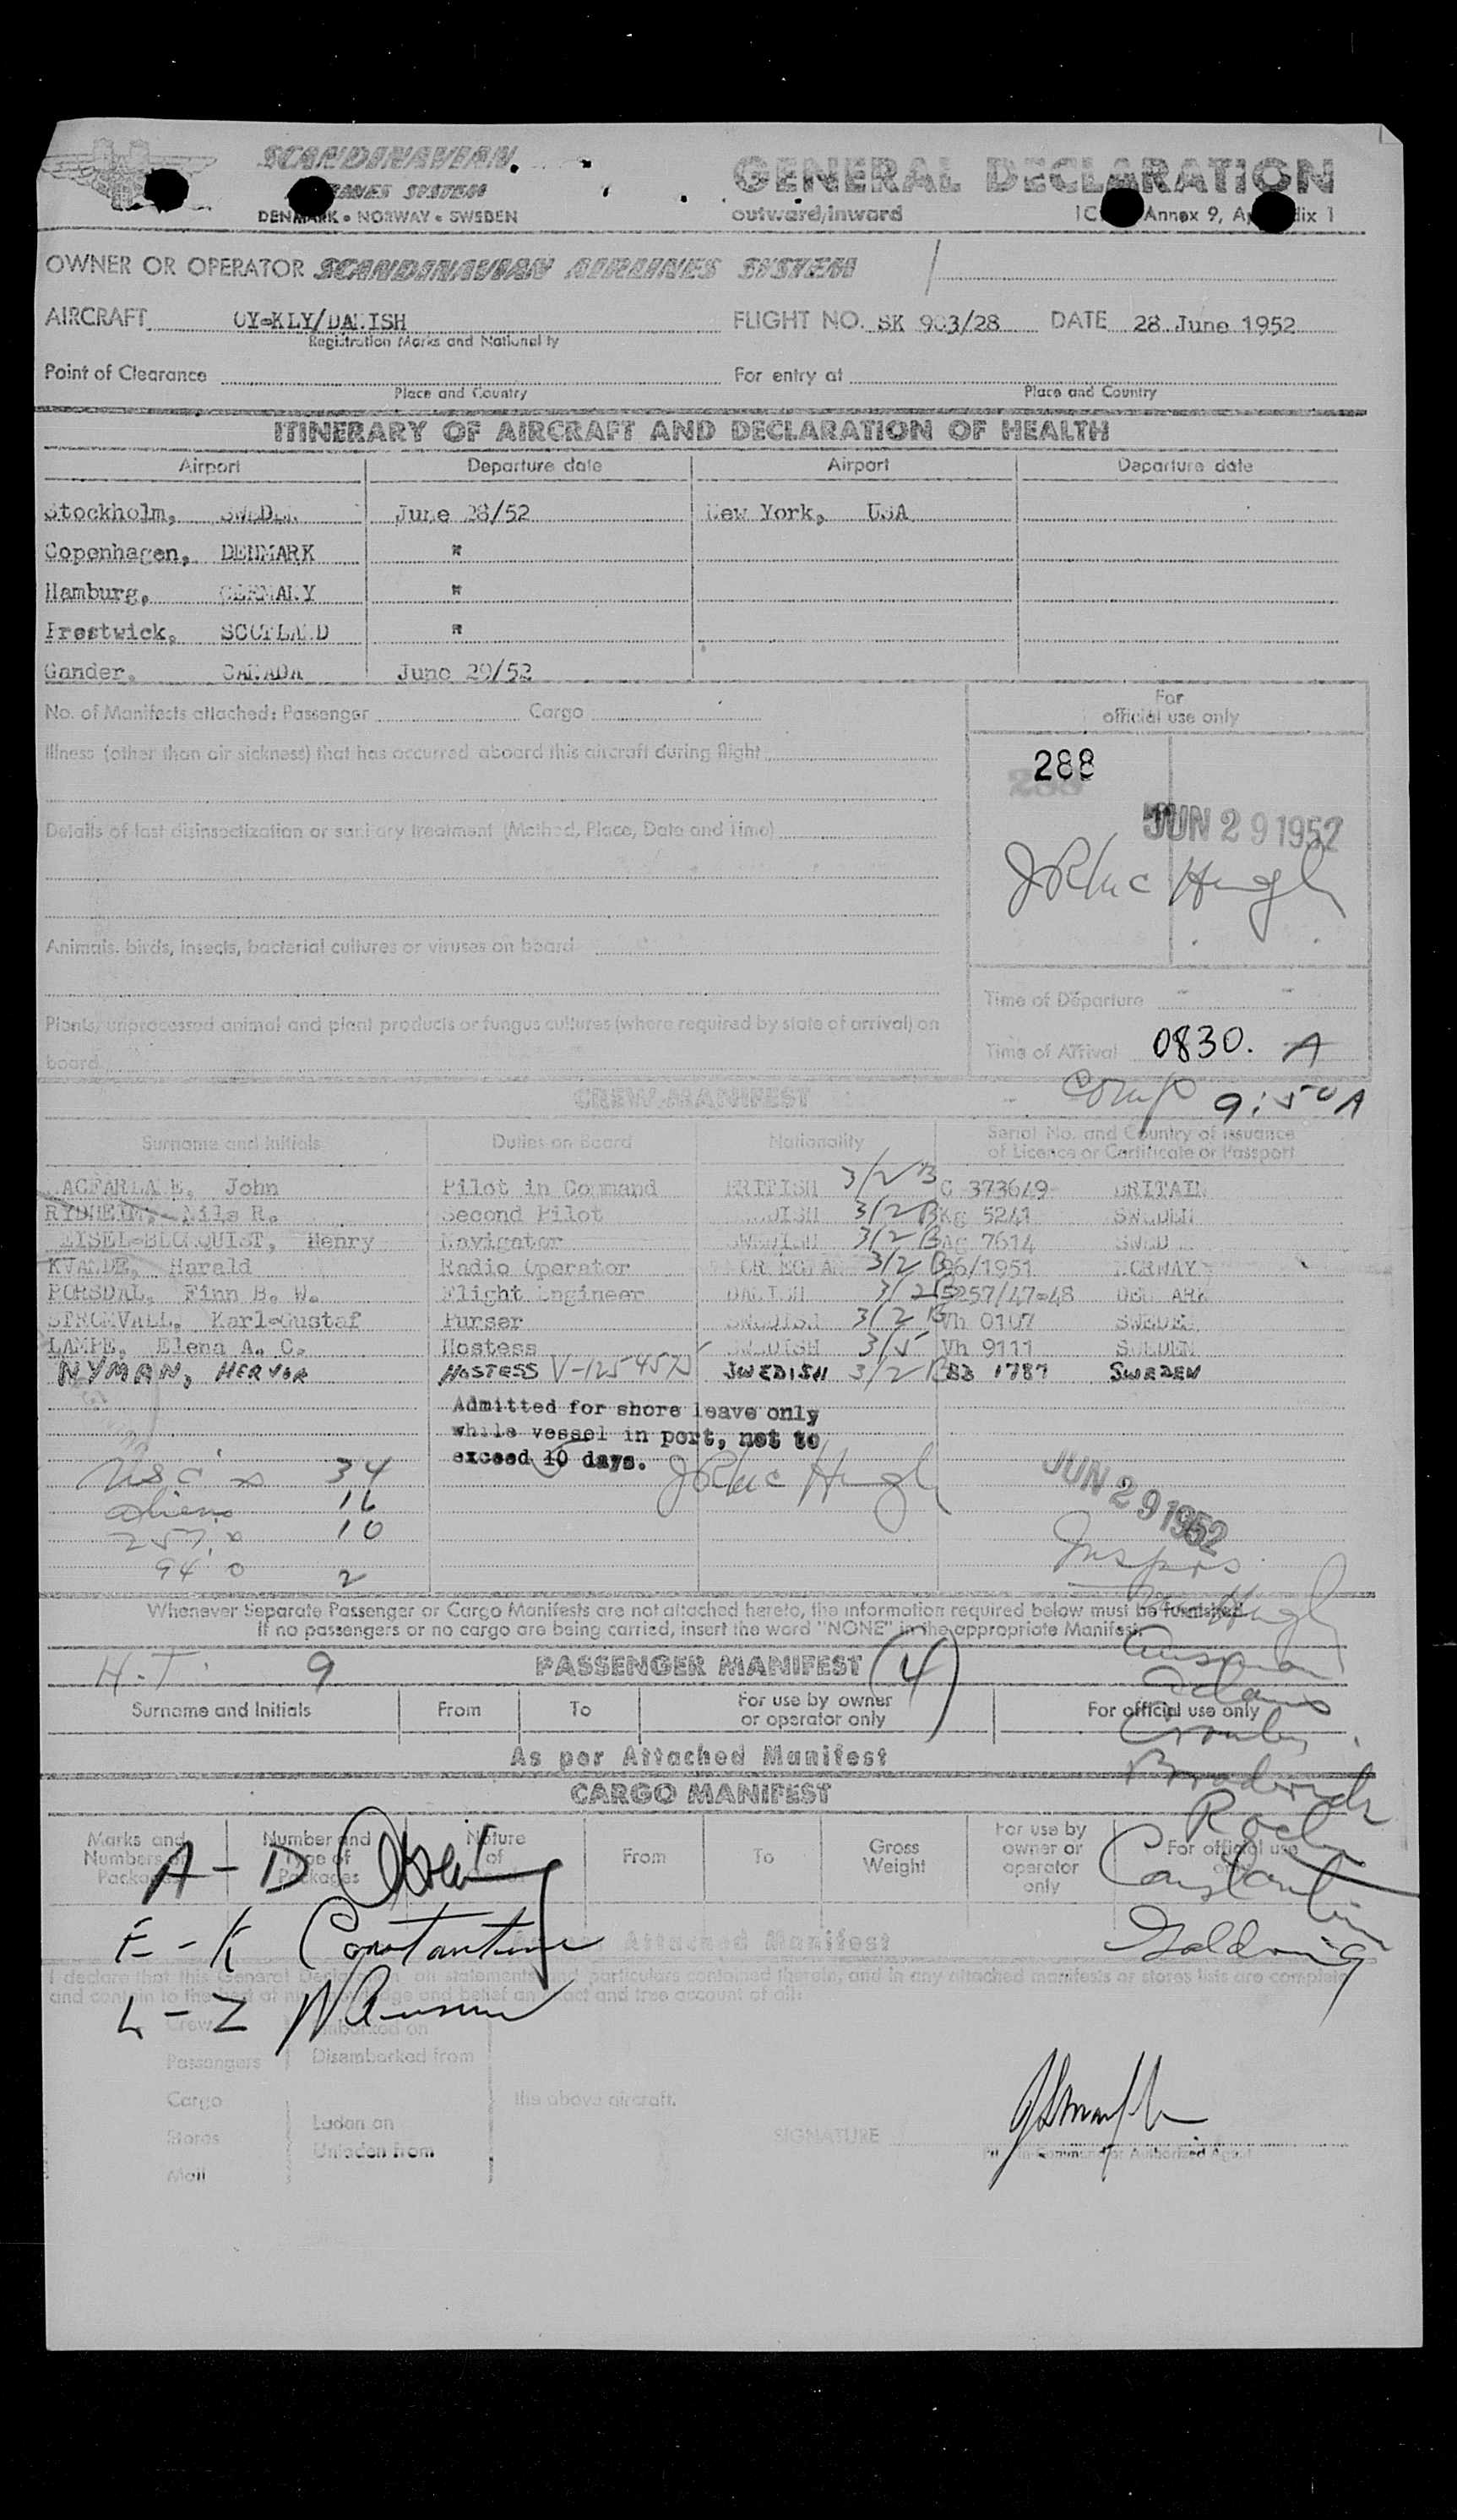 SCANDINAVIAN
SYSTEM
DENMARK • NORWAY • SWEDEN
GENERAL DECLARATION
outward/inward
Annex 9,
OWNER OR OPERATOR SCANDINAVIAN AIRLINES SYSTEM
AIRCRAFT OY-KLY/DANISH FLIGHT NO. SK 903/28 DATE 28 June 1952
Registration Marks and Nationality
Point of Clearance For entry at
Place and Country Place and Country
ITINERARY OF AIRCRAFT AND DECLARATION OF HEALTH
Airport Departure date Airport Departure date
Stockholm, SWEDEN June 28/52 New York, USA
Copenhagen, DENMARK "
Hamburg, GERMANY "
Prestwick, SCOTLAND "
Gander, CANADA June 29/52
No. of Manifests attached: Passenger Cargo
For
official use only
Illness (other than air sickness) that has occurred aboard this aircraft during flight
288
JUN 29 1952
Details of last disinsectization or sanitary treatment (Method, Place, Date and Time)
Animals, birds, insects, bacterial cultures or viruses on board
Time of Departure
Plants, unprocessed animal and plant products or fungus cultures (where required by state of arrival) on
board
Time of Arrival 0830. A
Comp 9:50 A
CREW MANIFEST
Surname and Initials Duties on Board Nationality Serial No. and Country of Issuance
of Licence or Certificate or Passport
MACFARLANE, John Pilot in Command BRITISH 3/2 B C 373649 BRITAIN
RYDHEIM, Nils R. Second Pilot SWEDISH 3/2 B Kg 5241 SWEDEN
Henry Navigator SWEDISH 3/2 B Ag 7614 SWEDEN
KVANDE, Harald Radio Operator NORWEGIAN 3/2 B 96/1951 NORWAY
PORSDAL, Finn B. W. Flight Engineer DANISH 3/2 B 5257/47-48 DENMARK
STROMVALL, Karl-Gustaf Purser SWEDISH 3/2 B Vh 0107 SWEDEN
LAMPE, Elena A. C. Hostess SWEDISH 3/5 Vh 9111 SWEDEN
NYMAN, HERVOR HOSTESS SWEDISH 3/2 B 1787 SWEDEN
Admitted for shore leave only
while vessel in port, not to
exceed 10 days.
USC's 34
Aliens 16
10
2
JUN 29 1952
Insprs
Whenever Separate Passenger or Cargo Manifests are not attached hereto, the information required below must be furnished.
If no passengers or no cargo are being carried, insert the word "NONE" in the appropriate Manifest.
H.T. 9 PASSENGER MANIFEST (4)
Surname and Initials From To For use by owner
or operator only For official use only
As per Attached Manifest
CARGO MANIFEST
Marks and
Numbers of
Packages Number and
Type of
Packages Nature
of From To Gross
Weight For use by
owner or
operator
only For official use
Constantine
Golding
A - D
E - K Constantine
As per Attached Manifest
I declare that this General Declaration, all statements and particulars contained therein, and in any attached manifests or stores lists are complete
and contain to the best of my knowledge and belief an exact and true account of all:
L - Z
Crew Embarked on
Passengers Disembarked from
Cargo the above aircraft.
Laden on
Stores Unladen from
Mail
SIGNATURE
Pilot in Command or Authorized Agent